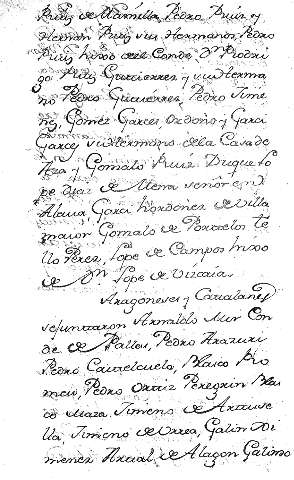 Ruiz de Marmilla, Pedro Ruiz y
Hernan Ruiz sus Hermanos, Pedro
Ruiz hixo del Conde Dn. Rodri
go Ruiz Gutierrez y su Herma
no Pedro Gutierrez, Pedro Xime
nz, Gomez Garces Ordoño y Garci
Garcez sus Hermanos de la Casa de
Aza, y Gonzalo Ruiz Duque Lo
pe Diaz de Mena señor en
Alava Garci hordoñez de Villa
maior Gonzalo de Porcelos te
llo Perez, Lope de Campos hixo
de Dn. Lope de Vizcaia.
Aragoneses y Catalanes
se juntaron Arnaldo Mir Con
de de Pallas, Pedro Arazuri
Pedro Blasco Ro
meu, Pedro Ortiz Peregrin Blas
co Maza, Ximeno de Artuse
lla, Ximeno de Urrea, Galin Xi
menez Arcial de Alagon Galindo